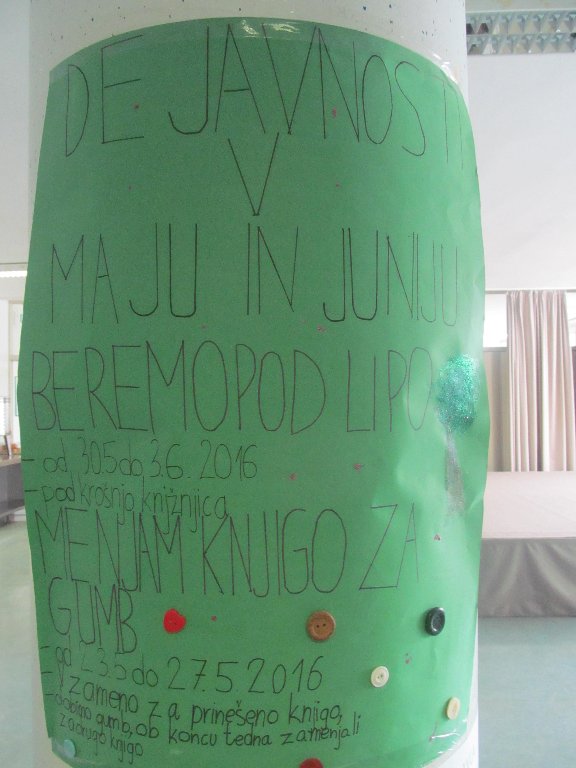 DEJAVNOSTI
V
MAJU IN JUNIJU
BEREMO POD LIPO
- od 30.5 do 3.6. 2016
- pod krošnjo knjižnjica
MENJAM KNJIGO ZA
GUMB
- od 23.5 do 27.5.2016
- v zameno za prinešeno knjigo,
dobimo gumb, ob koncu tedna zamenjali
za drugo knjigo